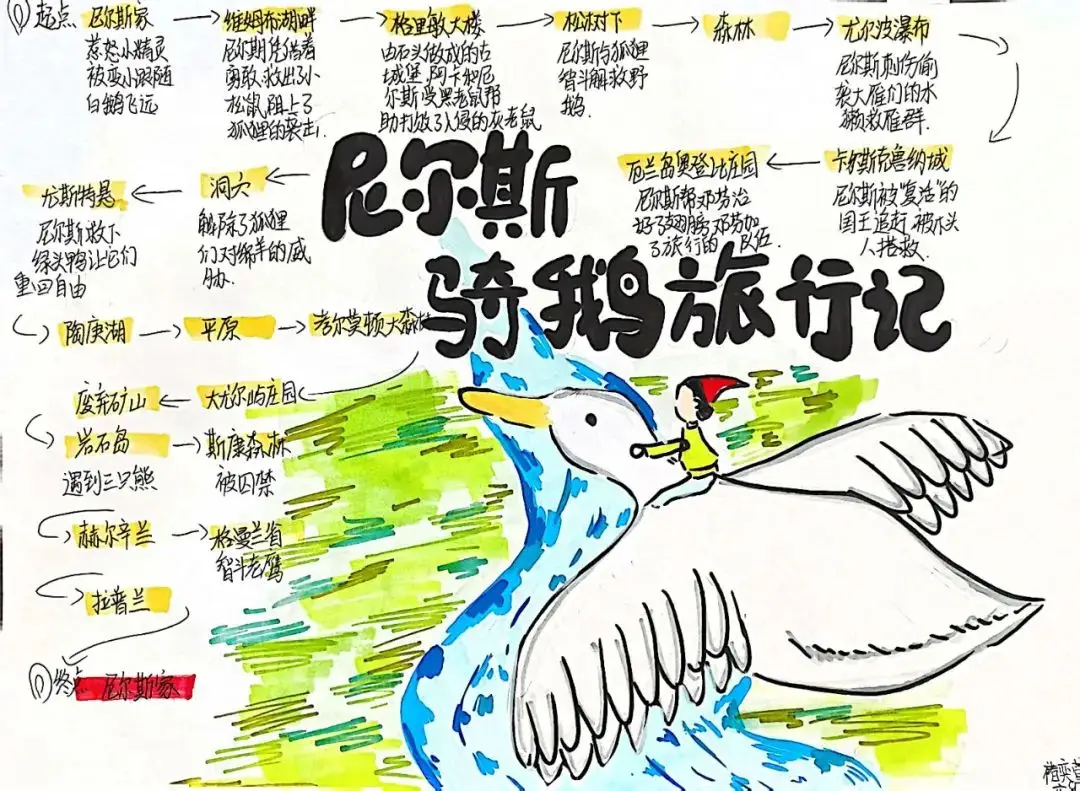 起点
尼尔斯家
惹怒小精灵
被变小跟随
白鹅飞远
维姆布湖畔
尼尔斯凭借着
勇敢,救出了小
松鼠,阻止了
狐狸的袭击.
格里敏大楼
由石头做成的古
城堡,阿卡和尼
尔斯受黑老鼠帮
助打败了入侵的灰老鼠
松树下
尼尔斯与狐狸
智斗解救野
鹅.
森林
尤尔波瀑布
尼尔斯刺伤偷
袭大雁们的水
獭救雁群.
卡尔斯克鲁纳城
尼尔斯被"复活"的
国王追赶,被木头
人搭救.
厄兰岛奥登比庄园
尼尔斯帮邓芬治
好了翅膀,邓芬加
了旅行的队伍
洞穴
解除了狐狸
们对绵羊的威
胁.
尤斯特悬
尼尔斯救下
绿头鸭让它们
重回自由
尼尔斯
骑鹅旅行记
陶庚湖
平原
考尔莫顿大森林
大尤尔屿庄园
废弃矿山
岩石岛
遇到三只熊
斯康森林
被囚禁
赫尔辛兰
格曼兰省
智斗老鹰
拉普兰
终点
尼尔斯家